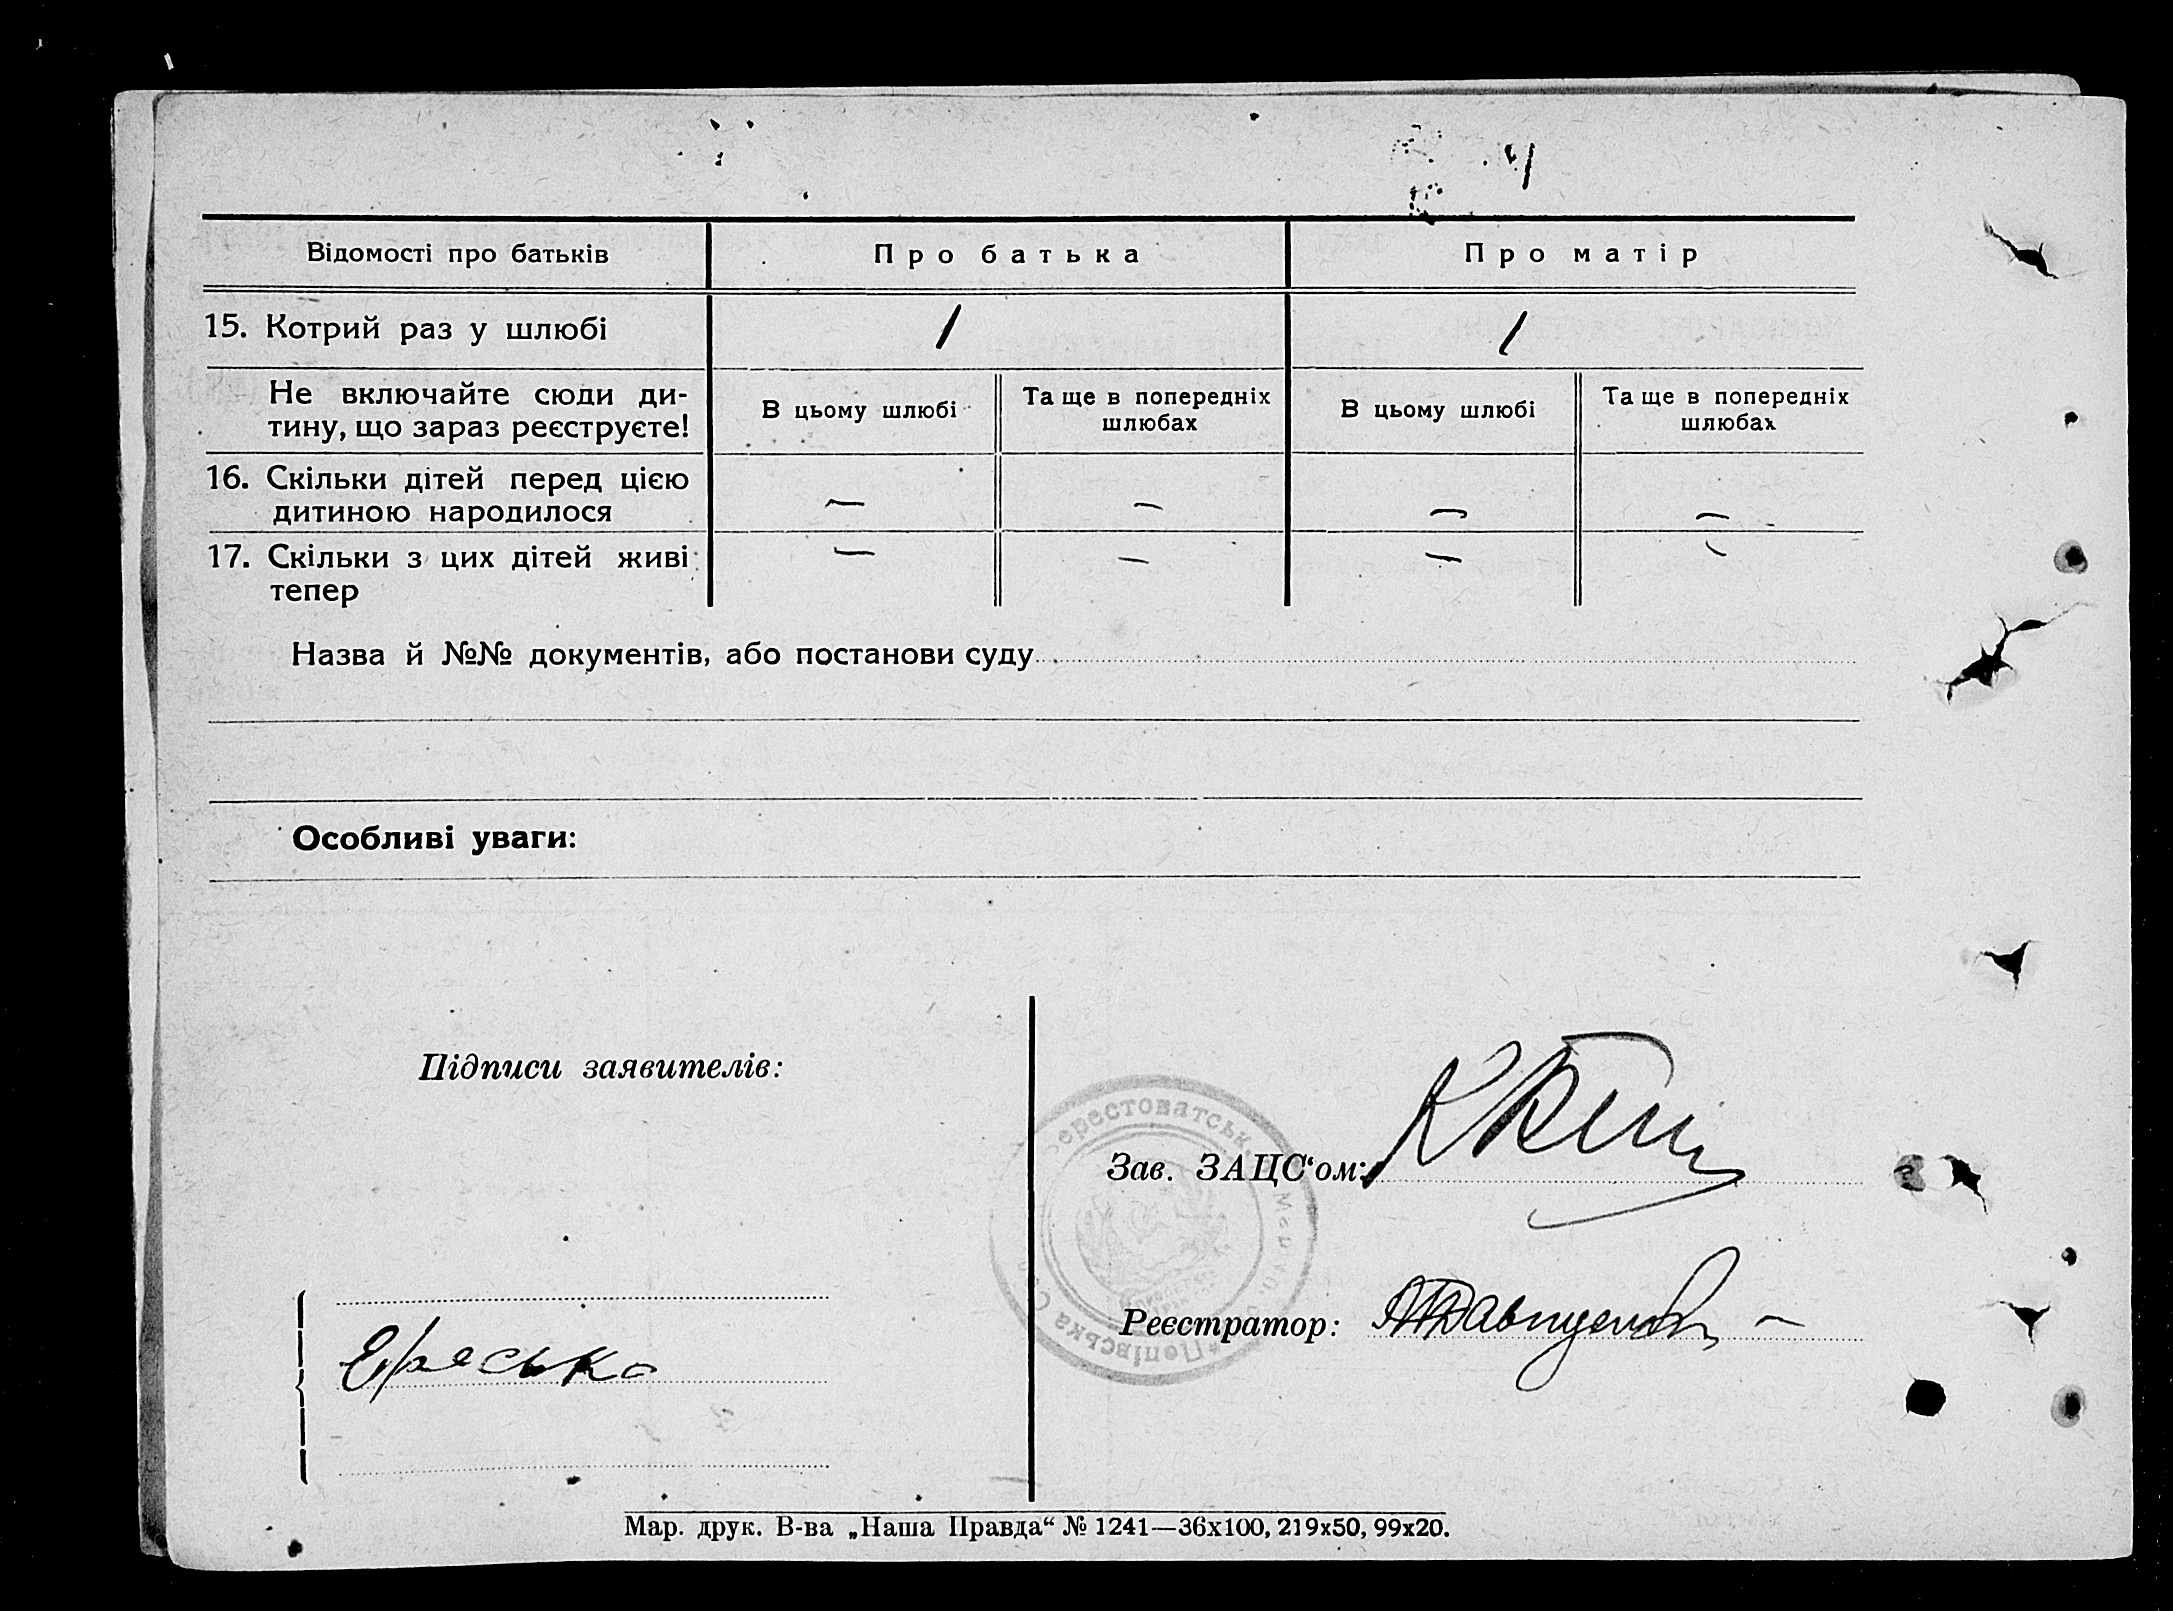 Відомості про батьків
Про батька
Про матір
15. Котрий раз у шлюбі
1
1
Не включайте сюди ди-
тину, що зараз реєструєте!
В цьому шлюбі
Та ще в попередніх
шлюбах
В цьому шлюбі
Та ще в попередніх
шлюбах
16. Скільки дітей перед цією
дитиною народилося
— — — —
17. Скільки з цих дітей живі
тепер
— — — —
Назва й №№ документів, або постанови суду
Особливі уваги:
Підписи заявителів:
Зав. ЗАЦС‘ом:
Реєстратор:
Мар. друк. В-ва „Наша Правда“ № 1241—36х100, 219х50, 99х20.